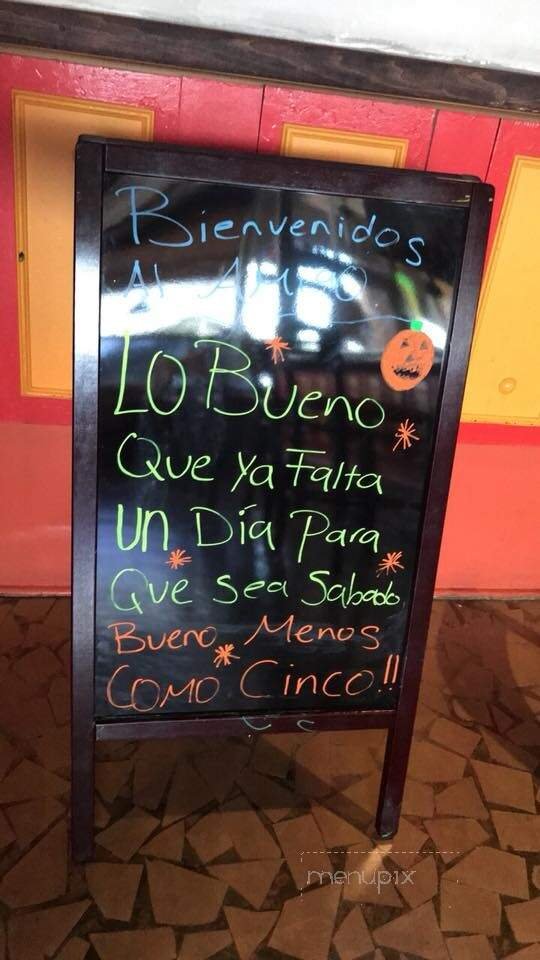 Bienvenidos
Al AMIGO
Lo Bueno
Que ya Falta
un Día Para
Que sea Sabado
Bueno Menos
Como Cinco!!
menupix